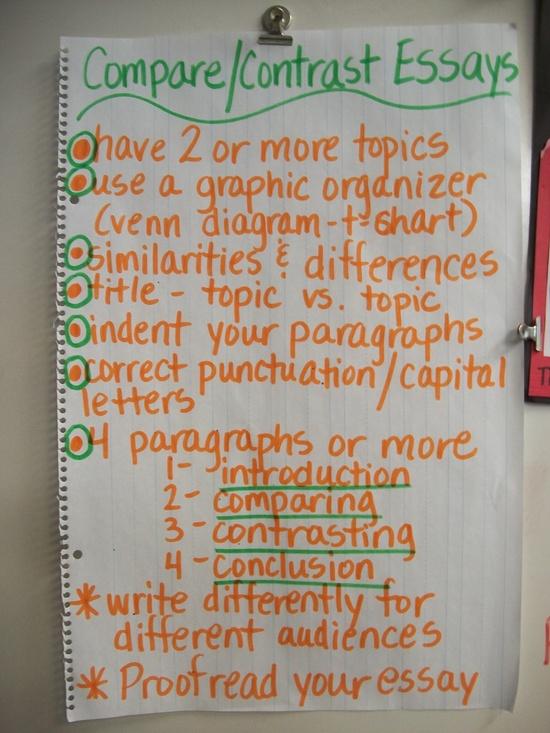 Compare/Contrast Essays
have 2 or more topics
use a graphic organizer
(venn diagram-t-chart)
similarities & differences
title - topic vs. topic
indent your paragraphs
correct punctuation/capital
letters
4 paragraphs or more
1- introduction
2- comparing
3- contrasting
4- conclusion
* write differently for
different audiences
* Proofread your essay